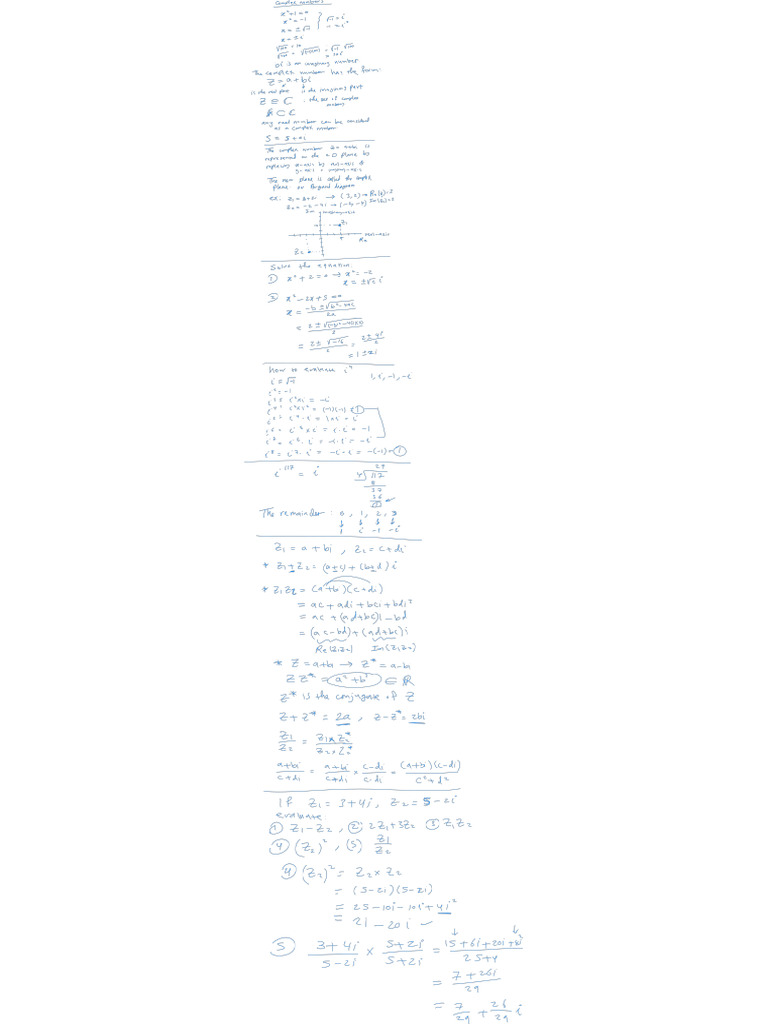 Complex numbers
x² + 1 = 0
x² = -1
x = ±√-1
x = ±i
√-1 = i
-1 = i²
√100 = 10
√-100 = √(-1)(100) = √-1 √100
= 10i
is an imaginary number
The complex number has the form:
Z = a + bi
is the real part is the imaginary part
Z ∈ ℂ : the set of complex
numbers
ℝ ⊂ ℂ
Any real number can be
as a complex number
5 = 5 + 0i
The complex number is
represented in the 2D plane by
replacing x-axis by real-axis &
y-axis imaginary-axis
The new plane is called the complex
plane or Argand diagram
ex:
Im imaginary-axis
Z₁
real-axis
Re
Z₂
Solve the equation
① x² + 2 = 0 → x² = -2
x = ±√2 i
② x² - 2x + 5 = 0
x = -b ± √b² - 4ac / 2a
= 2 ± √-16 / 2 = 2 ± 4i / 2
= 1 ± 2i
how to evaluate iⁿ
i = √-1
1, i, -1, -i
i² = -1
i³ = i² × i = -i
i⁴ = i² × i² = (-1)(-1) = 1
i⁵ = i⁴ · i = 1 × i = i
i⁶ = i⁵ × i = i · i = -1
i⁷ = i⁶ · i = -1 · i = -i
i⁸ = i⁷ · i = -i · i = -(-1) = 1
i¹¹⁷ = i
29
4 117
8
37
36
The remainder : 0, 1, 2, 3
1 i -1 -i
Z₁ = a + bi , Z₂ = c + di
* Z₁ ± Z₂ = (a ± c) + (b ± d) i
* Z₁Z₂ = (a + b )(c + di)
= ac + adi + bci + bdi²
= ac + (ad + bc)i - bd
= (ac - bd) + (ad + bc)i
Re(Z₁Z₂) Im(Z₁Z₂)
* Z = a + b → Z* = a - b
Z Z* = a² + b² ∈ ℝ
Z* is the conjugate of Z
Z + Z* = 2a , Z - Z* = 2bi
Z₁ / Z₂ = Z₁ × Z₂* / Z₂ × Z₂*
a + bi / c + di = a + bi / c + di × c - di / c - di = (a + b )(c - di) / c² + d²
If Z₁ = 3 + 4i , Z₂ = 5 - 2i
evaluate
① Z₁ - Z₂ , ② 2Z₁ + 3Z₂ ③ Z₁Z₂
④ (Z₂)² , (5) Z₁ / Z₂
④ (Z₂)² = Z₂ × Z₂
= (5 - 2i)(5 - 2i)
= 25 - 10i - 10i + 4i²
= 21 - 20i
⑤ 3 + 4i / 5 - 2i × 5 + 2i / 5 + 2i = 15 + 6i + 20i + 8i² / 25 + 4
= 7 + 26i / 29
= 7 / 29 + 26 / 29 i